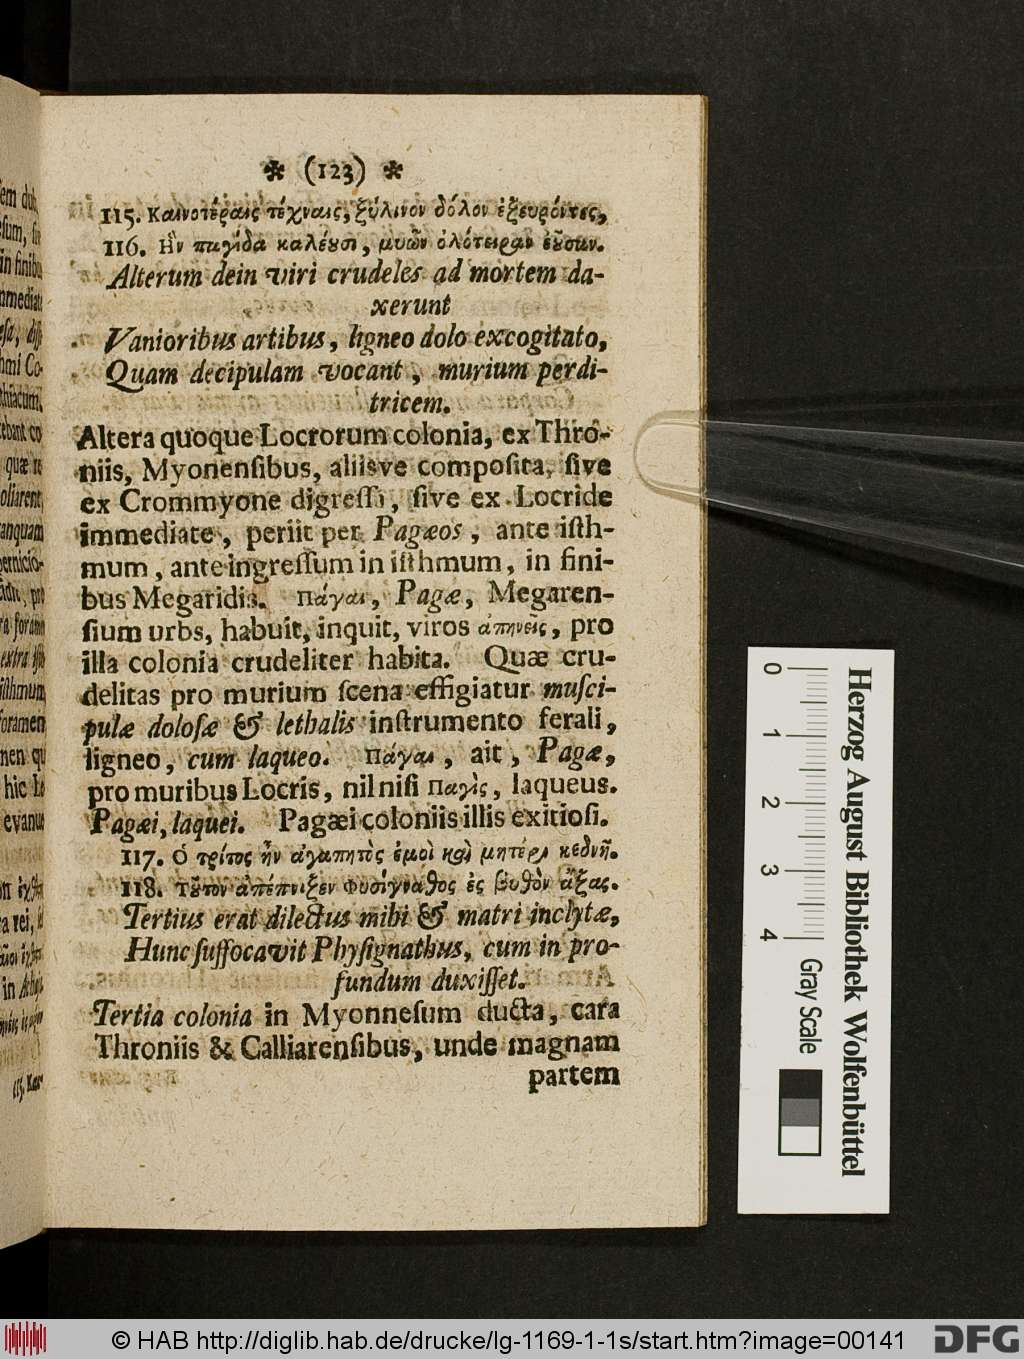 * (123) *
115. Καινοτέραις τέχναις, ξύλινον δόλον ἐξευρόντες,
116. Ἣν παγίδα καλέουσι, μυῶν ὀλέτειραν ἐοῦσαν.
Alterum dein viri crudeles ad mortem da-
xerunt
Vanioribus artibus, ligneo dolo excogitato,
Quam decipulam vocant, murium perdi-
tricem.
Altera quoque Locrorum colonia, ex Thro-
niis, Myonensibus, aliisve composita, sive
ex Crommyone digressi, sive ex Locride
immediate, periit per Pagæos, ante isth-
mum, ante ingressum in isthmum, in fini-
bus Megaridis. Πάγαι, Pagæ, Megaren-
sium urbs, habuit, inquit, viros ἀπηνεῖς, pro
illa colonia crudeliter habita. Quæ cru-
delitas pro murium scena effigiatur musci-
pulæ dolosæ & lethalis instrumento ferali,
ligneo, cum laqueo. Πάγαι, ait, Pagæ,
pro muribus Locris, nil nisi Παγὶς, laqueus.
Pagæi, laquei. Pagæi coloniis illis exitiosi.
117. Ὁ τρίτος ἦν ἀγαπητὸς ἐμοὶ καὶ μητέρι κεδνῇ.
118. Τοῦτον ἀπέπνιξεν Φυσίγναθος ἐς βυθὸν ἄξας.
Tertius erat dilectus mihi & matri inclytæ,
Hunc suffocavit Physignathus, cum in pro-
fundum duxisset.
Tertia colonia in Myonnesum ducta, cara
Throniis & Calliarensibus, unde magnam
partem
0 1 2 3 4
Gray Scale
Herzog August Bibliothek Wolfenbüttel
© HAB http://diglib.hab.de/drucke/lg-1169-1-1s/start.htm?image=00141
DFG